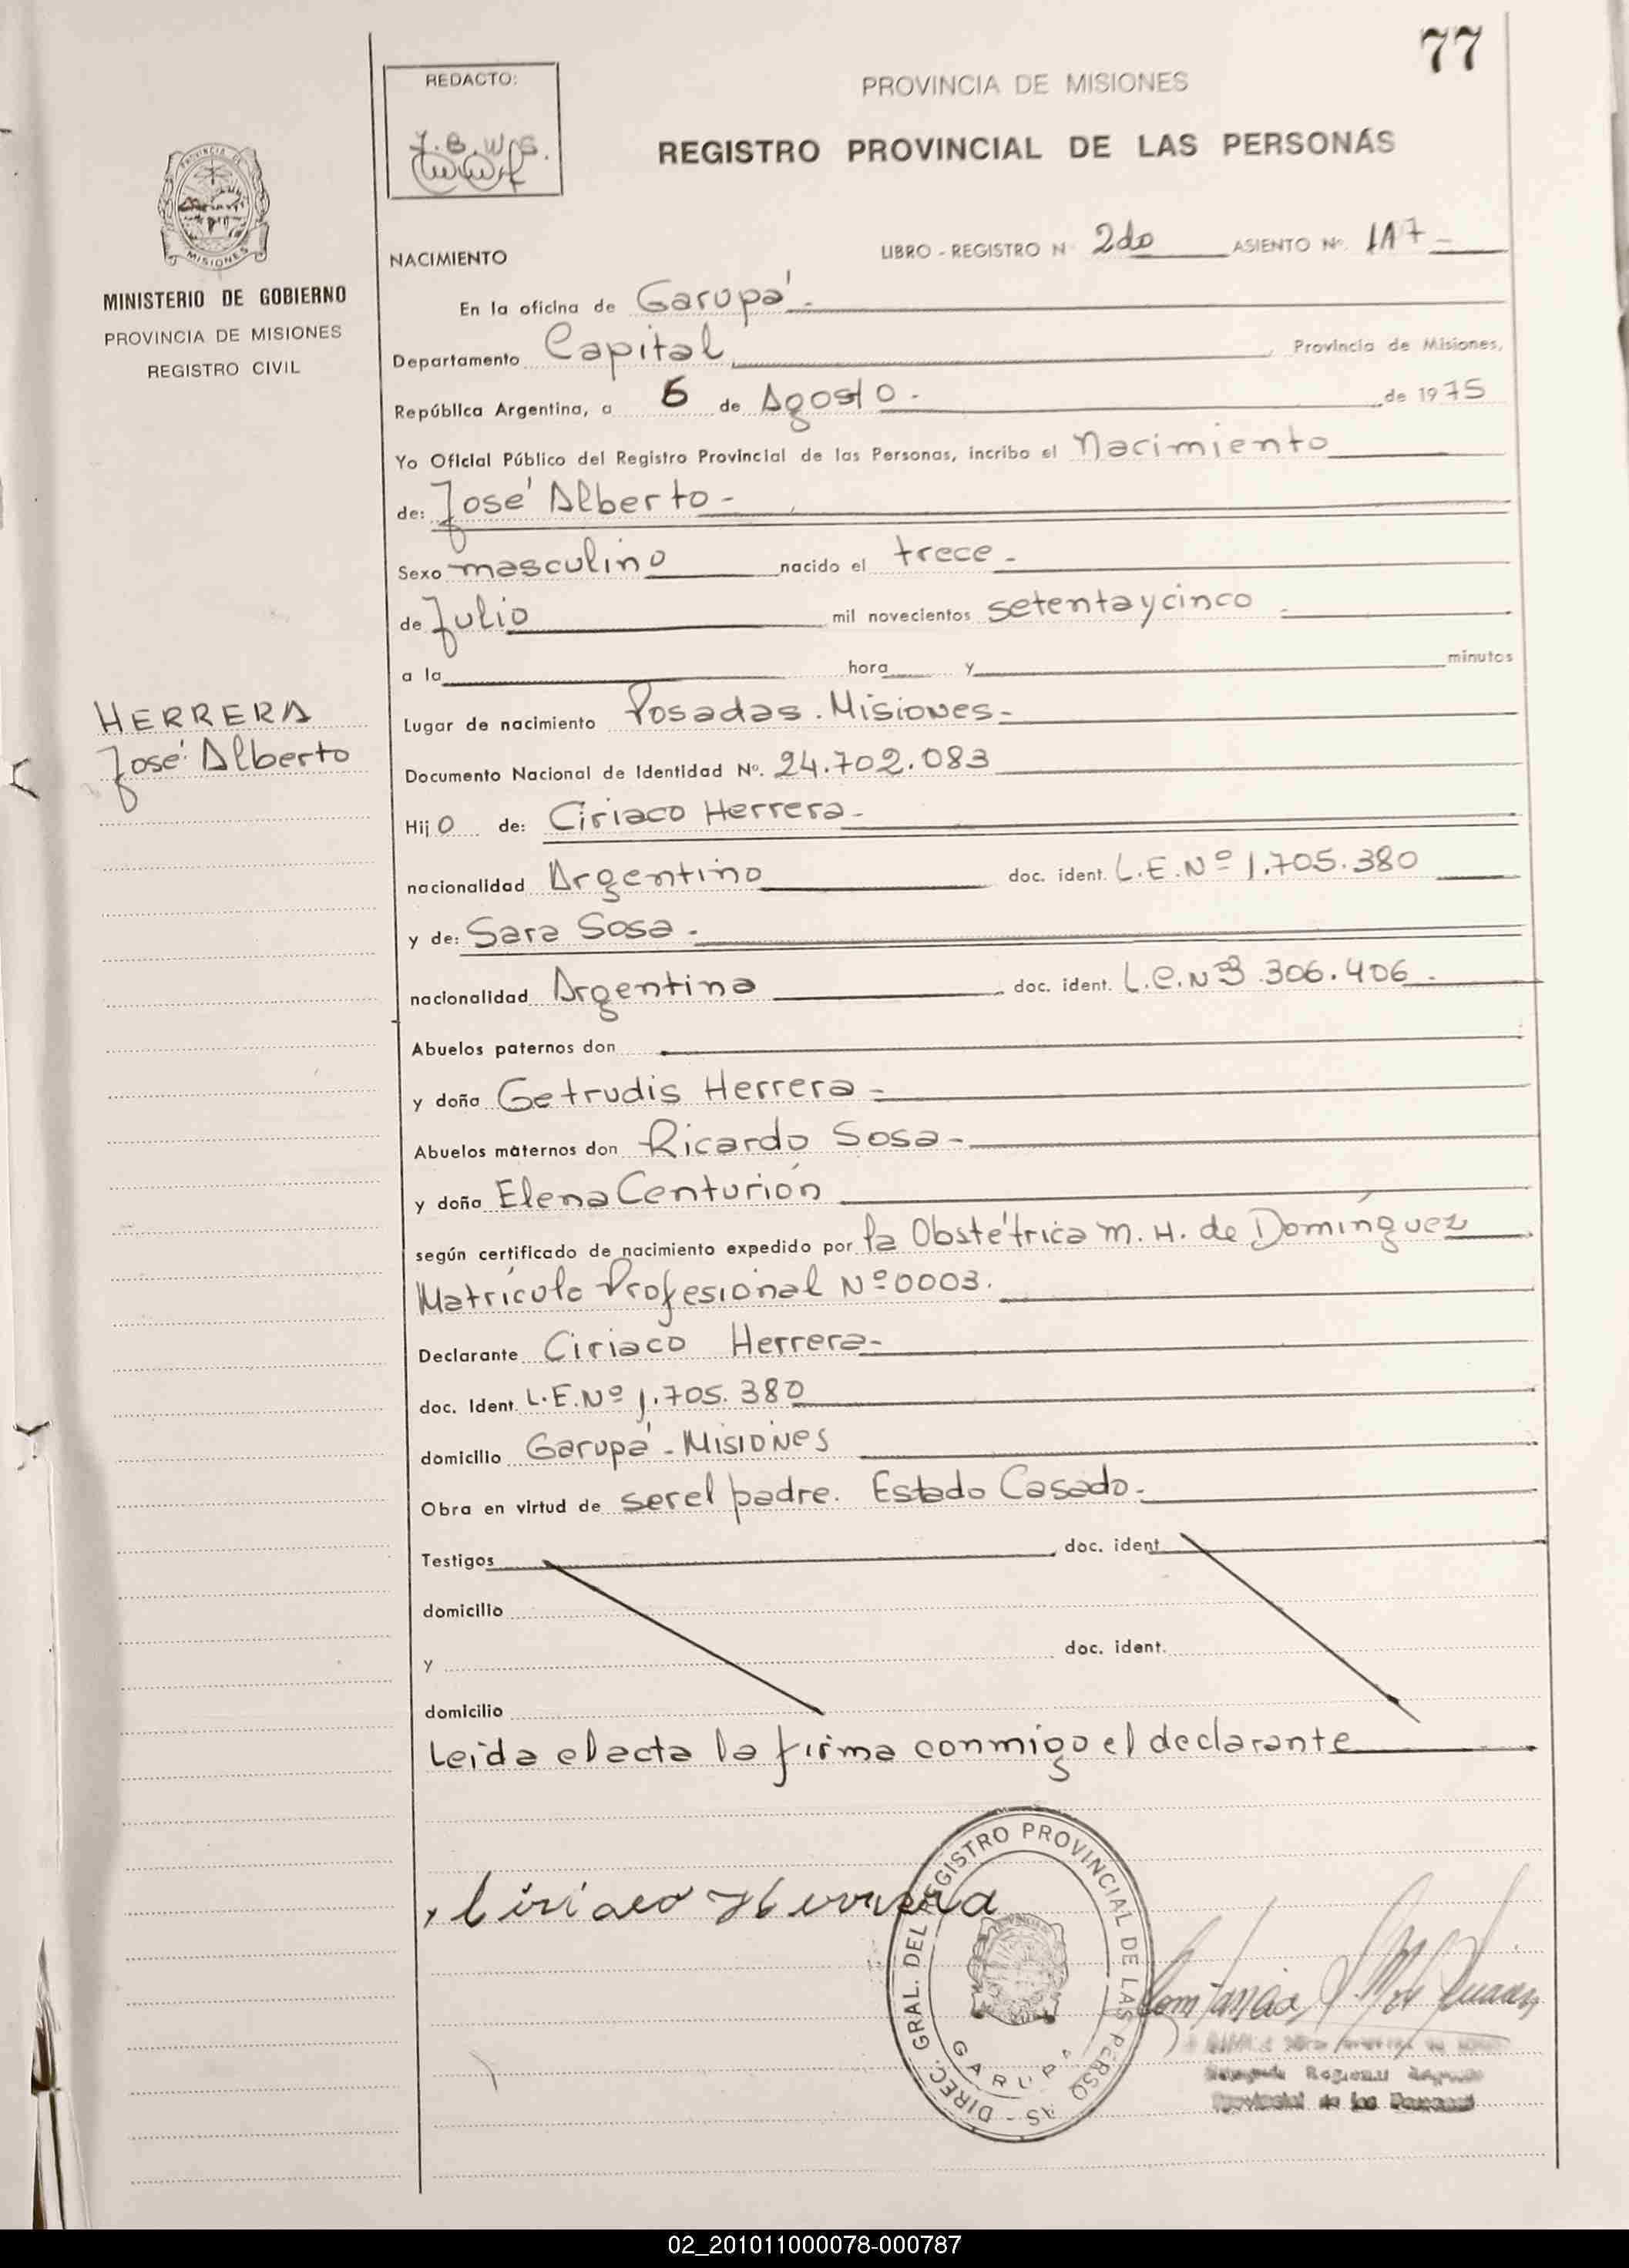 77
REDACTO:
J.B.W.S.
PROVINCIA DE MISIONES
REGISTRO PROVINCIAL DE LAS PERSONAS
PROVINCIA DE
MISIONES
MINISTERIO DE GOBIERNO
PROVINCIA DE MISIONES
REGISTRO CIVIL
NACIMIENTO
LIBRO - REGISTRO N 2do ASIENTO Nº.
En la oficina de Garupá -
Departamento Capital, Provincia de Misiones,
República Argentina, a 6 de Agosto - de 1975
Yo Oficial Público del Registro Provincial de las Personas, incribo el Nacimiento
de: José Alberto -
Sexo masculino nacido el trece -
de Julio mil novecientos setentaycinco -
a la hora y minutos
HERRERA
José Alberto
Lugar de nacimiento Posadas. Misiones -
Documento Nacional de Identidad Nº. 24.702.083
Hij o de: Ciriaco Herrera -
nacionalidad Argentino doc. ident. L.E.Nº 1.705.380
y de: Sara Sosa -
nacionalidad Argentina doc. ident. L.C.Nº3.306.406 -
Abuelos paternos don
y doña Getrudis Herrera -
Abuelos maternos don Ricardo Sosa -
y doña Elena Centurión
según certificado de nacimiento expedido por la Obstétrica M. H. de Domínguez
Matrícula Profesional Nº0003.
Declarante Ciriaco Herrera -
doc. Ident. L.E.Nº 1.705.380
domicilio Garupá - Misiones
Obra en virtud de ser el padre. Estado Casado -
Testigos doc. ident
domicilio
y doc. ident.
domicilio
Leida el acta la firma conmigo el declarante
Ciriaco Herrera
DIREC. GRAL. DEL REGISTRO PROVINCIAL DE LAS PERSO AS -
GARUPA
Provincial de las Personas
02_201011000078-000787